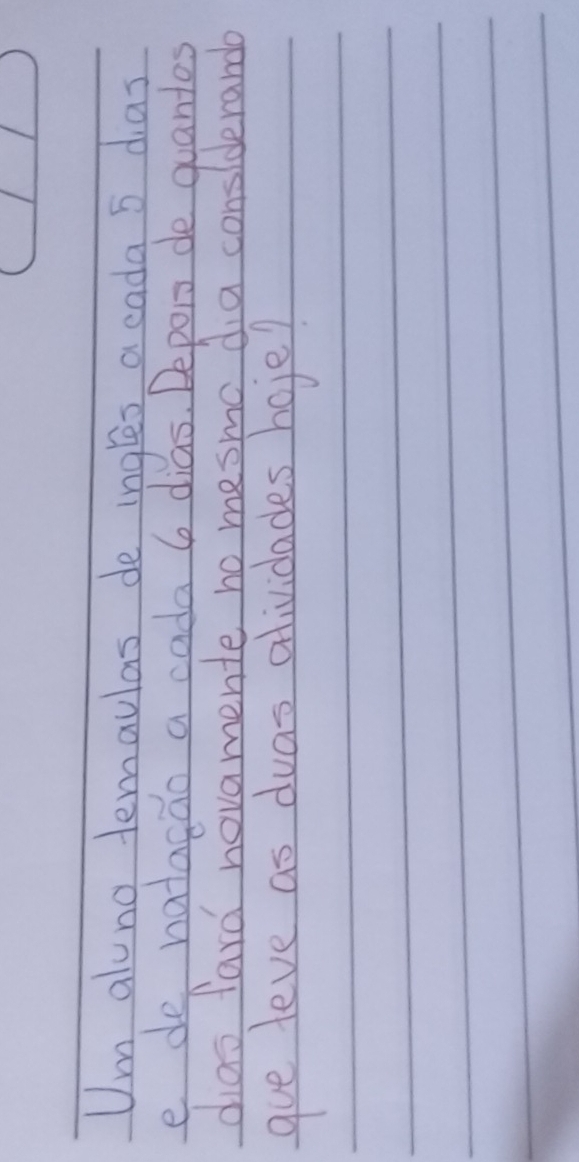 Um aluno tem aulas de inglês a cada 5 dias
e de natação a cada 6 dias. Depois de quantos
dias fará novamente no mesmo dia considerando
que teve as duas atividades hoje?